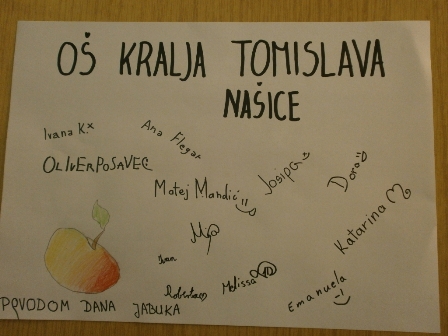 OŠ KRALJA TOMISLAVA
NAŠICE
Ivana K.
Ana Flegar
OLIVER POSAVEC
Matej Mandić
Josip G
Doro
Katarina
Ivan
Roberta
Melissa
Emanuela
POVODOM DANA JABUKA